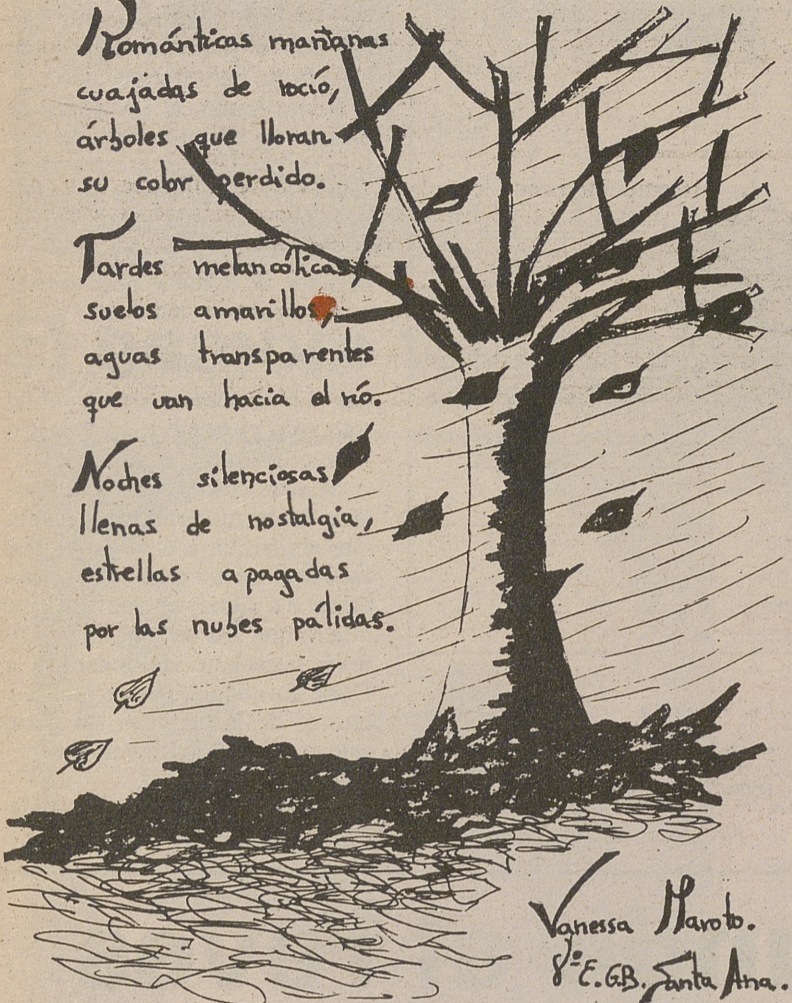 Románticas mañanas
cuajadas de roció,
árboles que lloran
su color perdido.
Tardes melancólicas
suelos amarillos,
aguas transparentes
que van hacia el rió.
Noches silenciosas,
llenas de nostalgia,
estrellas apagadas
por las nubes pálidas.
Vanessa Maroto.
8º E.G.B. Santa Ana.